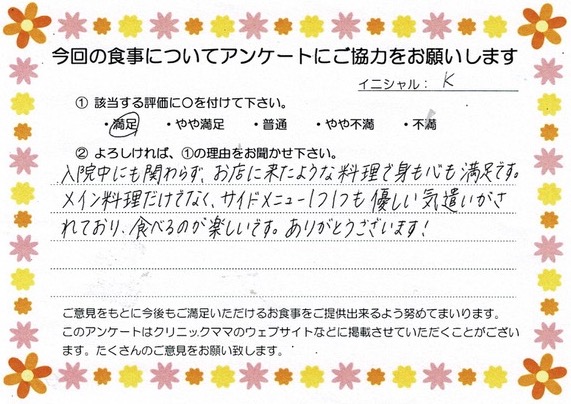 今回の食事についてアンケートにご協力をお願いします
イニシャル： K
① 該当する評価に○を付けて下さい。
・満足 ・やや満足 ・普通 ・やや不満 ・不満
② よろしければ、①の理由をお聞かせ下さい。
入院中にも関わらず、お店に来たような料理で身も心も満足です。
メイン料理だけでなく、サイドメニュー1つ1つも優しい気遣いがさ
れており、食べるのが楽しいです。ありがとうございます!
ご意見をもとに今後もご満足いただけるお食事をご提供出来るよう努めてまいります。
このアンケートはクリニックママのウェブサイトなどに掲載させていただくことがござい
ます。たくさんのご意見をお願い致します。